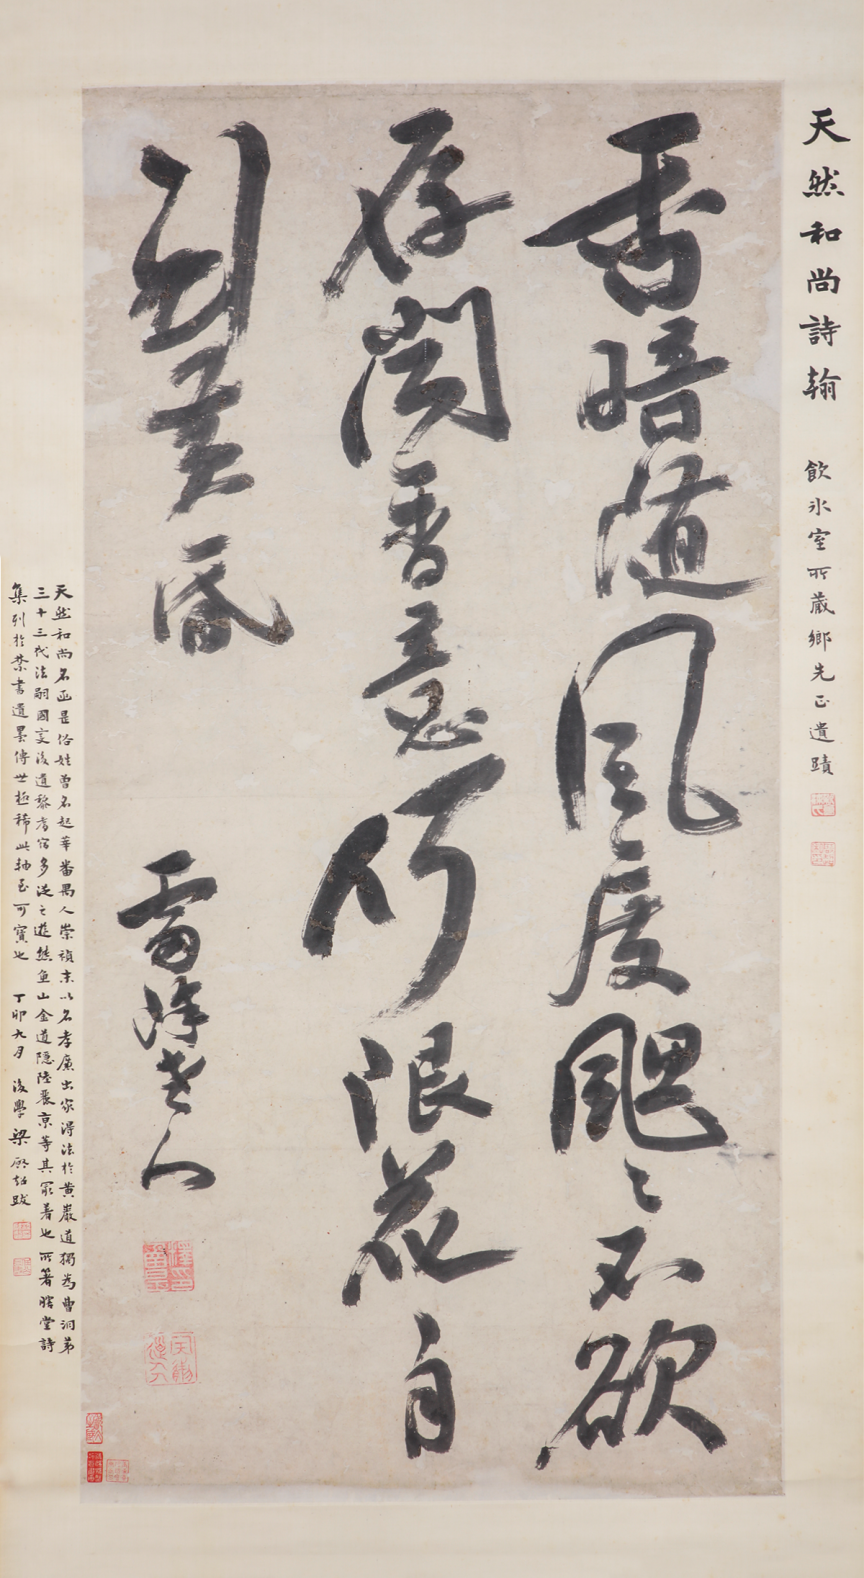 天然和尚詩翰 飲冰室所藏鄉先正遺蹟
香暗隨風度颸〻不欲
存闲香意何限花自
到黃昏
雷峰老人
天然和尚名函昰俗姓曾名起莘番禺人崇禎末以名孝廉出家得法於黃巖道獨為曹洞第
三十三代法嗣國變後遺黎耆宿多從之遊熊魚山金道隱陸麗京等其最著也所著瞎堂詩
集列於禁書遺墨傳世極稀此軸至可寶也 丁卯九月 後學梁啟超跋